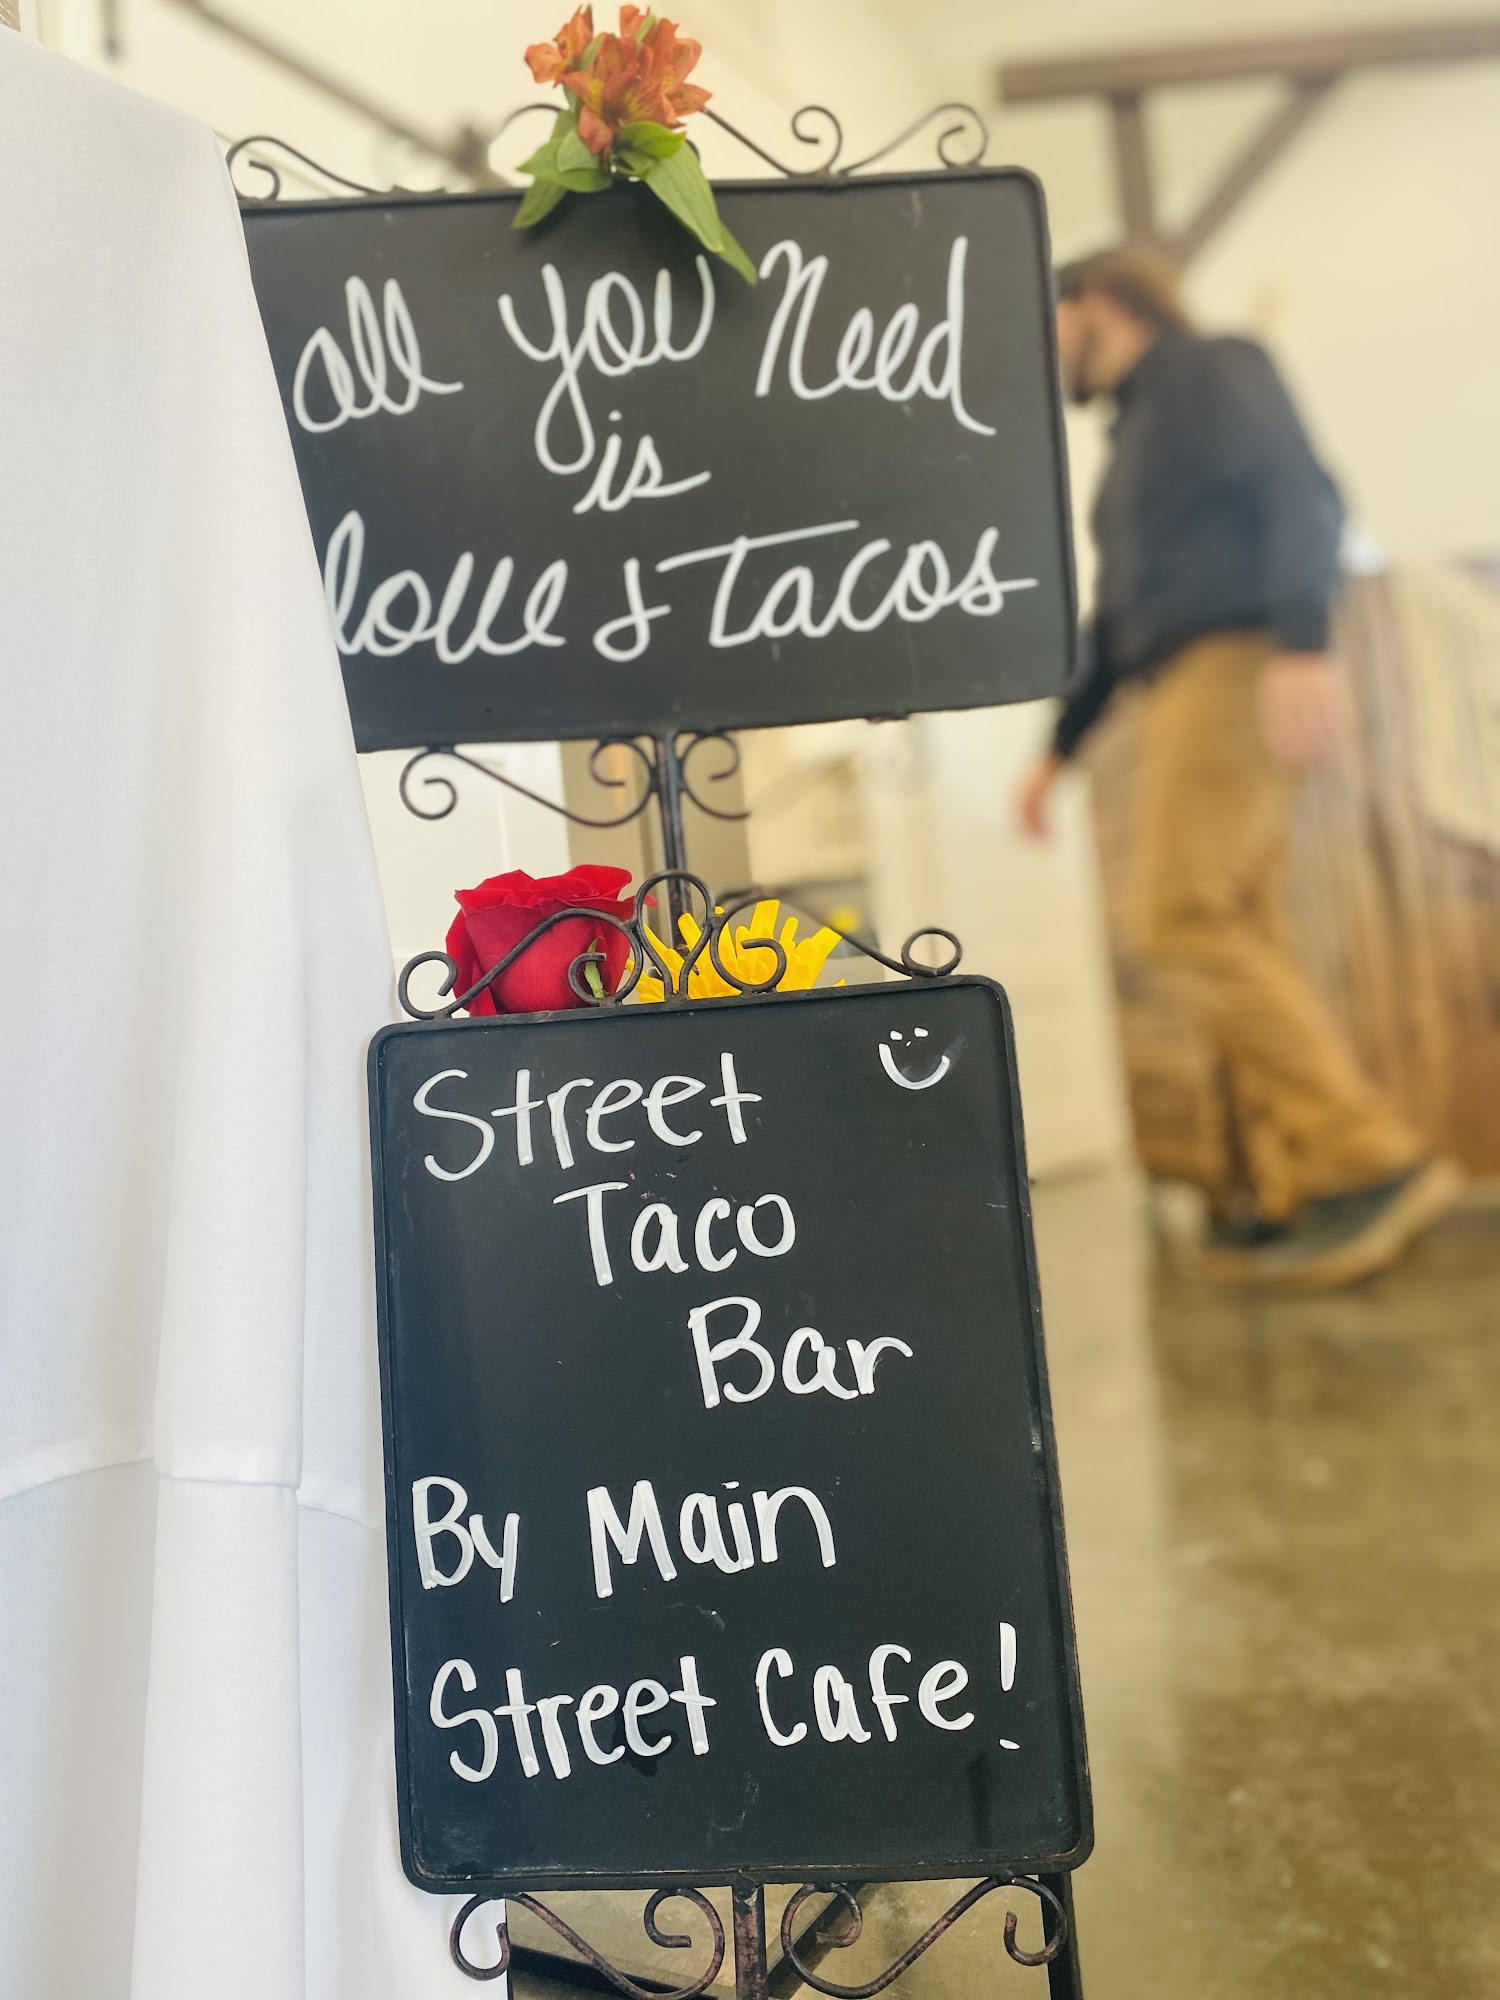 all you Need
is
love & Tacos
Street
Taco
Bar
By Main
Street Cafe!